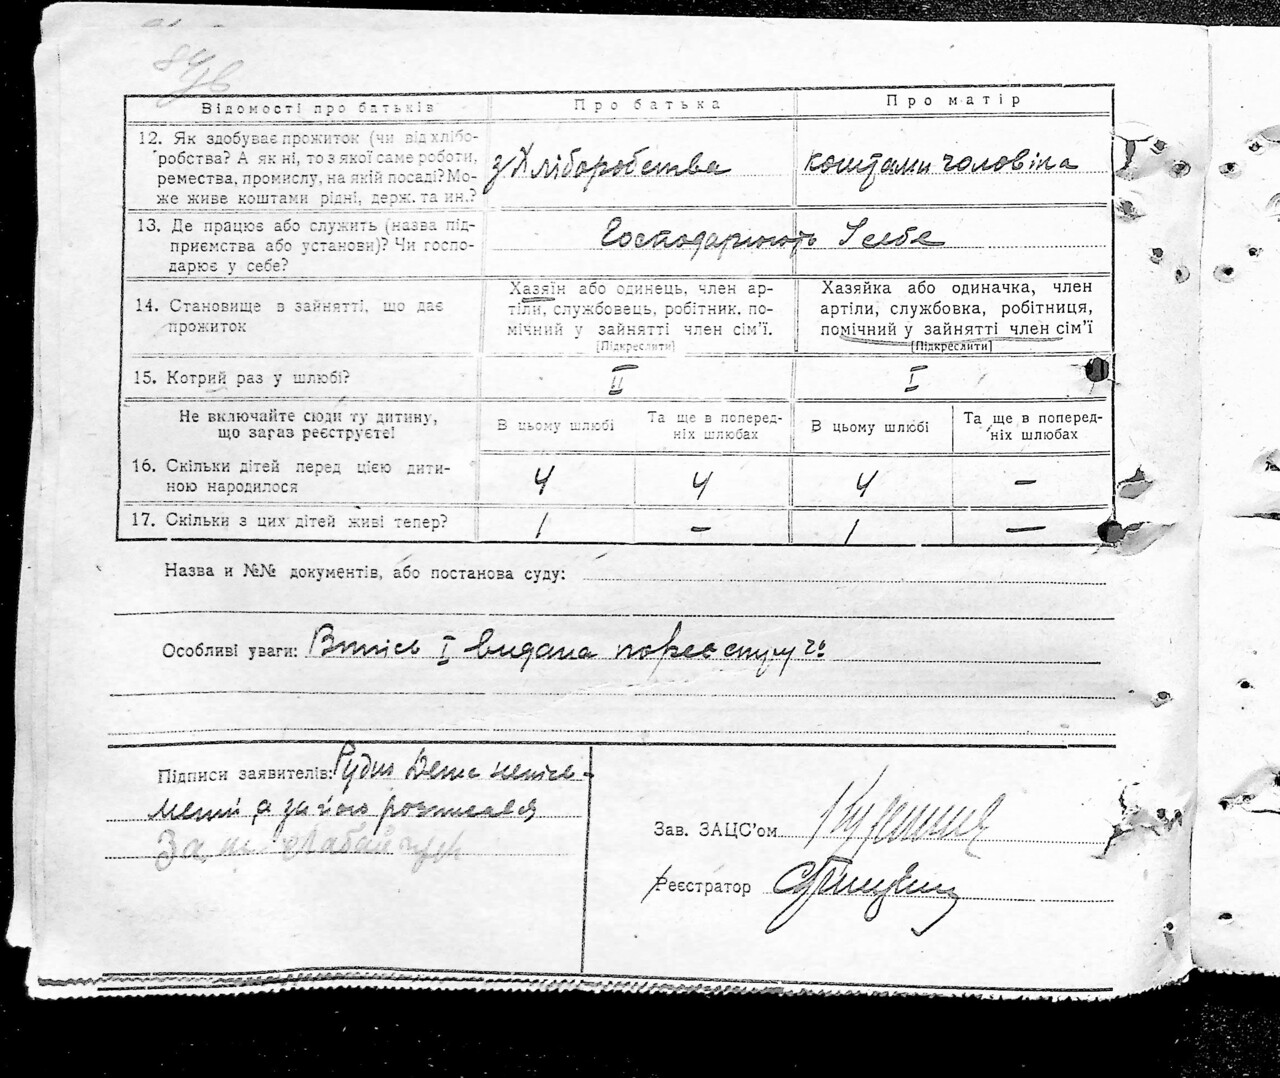 84зв
Відомості про батьків Про батька Про матір
12. Як здобуває прожиток (чи від хлібо-
робства? А як ні, то з якої саме роботи,
ремества, промислу, на якій посаді? Мо-
же живе коштами рідні, держ. та ин.?
з Хліборобства коштами чоловіка
13. Де працює або служить (назва під-
приємства або установи)? Чи госпо-
дарює у себе?
Господарюють У себе
14. Становище в зайнятті, що дає
прожиток
Хазяїн або одинець, член ар-
тіли, службовець, робітник, по-
мічний у зайнятті член сім'ї.
[Підкреслити]
Хазяйка або одиначка, член
артіли, службовка, робітниця,
помічний у зайнятті член сім'ї
[Підкреслити]
15. Котрий раз у шлюбі? II I
Не включайте сюди ту дитину,
що зараз реєструєте!
В цьому шлюбі Та ще в поперед-
ніх шлюбах В цьому шлюбі Та ще в поперед-
ніх шлюбах
16. Скільки дітей перед цією дити-
ною народилося 4 4 4 –
17. Скільки з цих дітей живі тепер? 1 – 1 –
Назва и №№ документів, або постанова суду:
Особливі уваги: Витяг I видана по реєструу
Підписи заявителів: Рудик неписе-
мени а за його розписався
За
Зав. ЗАЦС'ом
Реєстратор